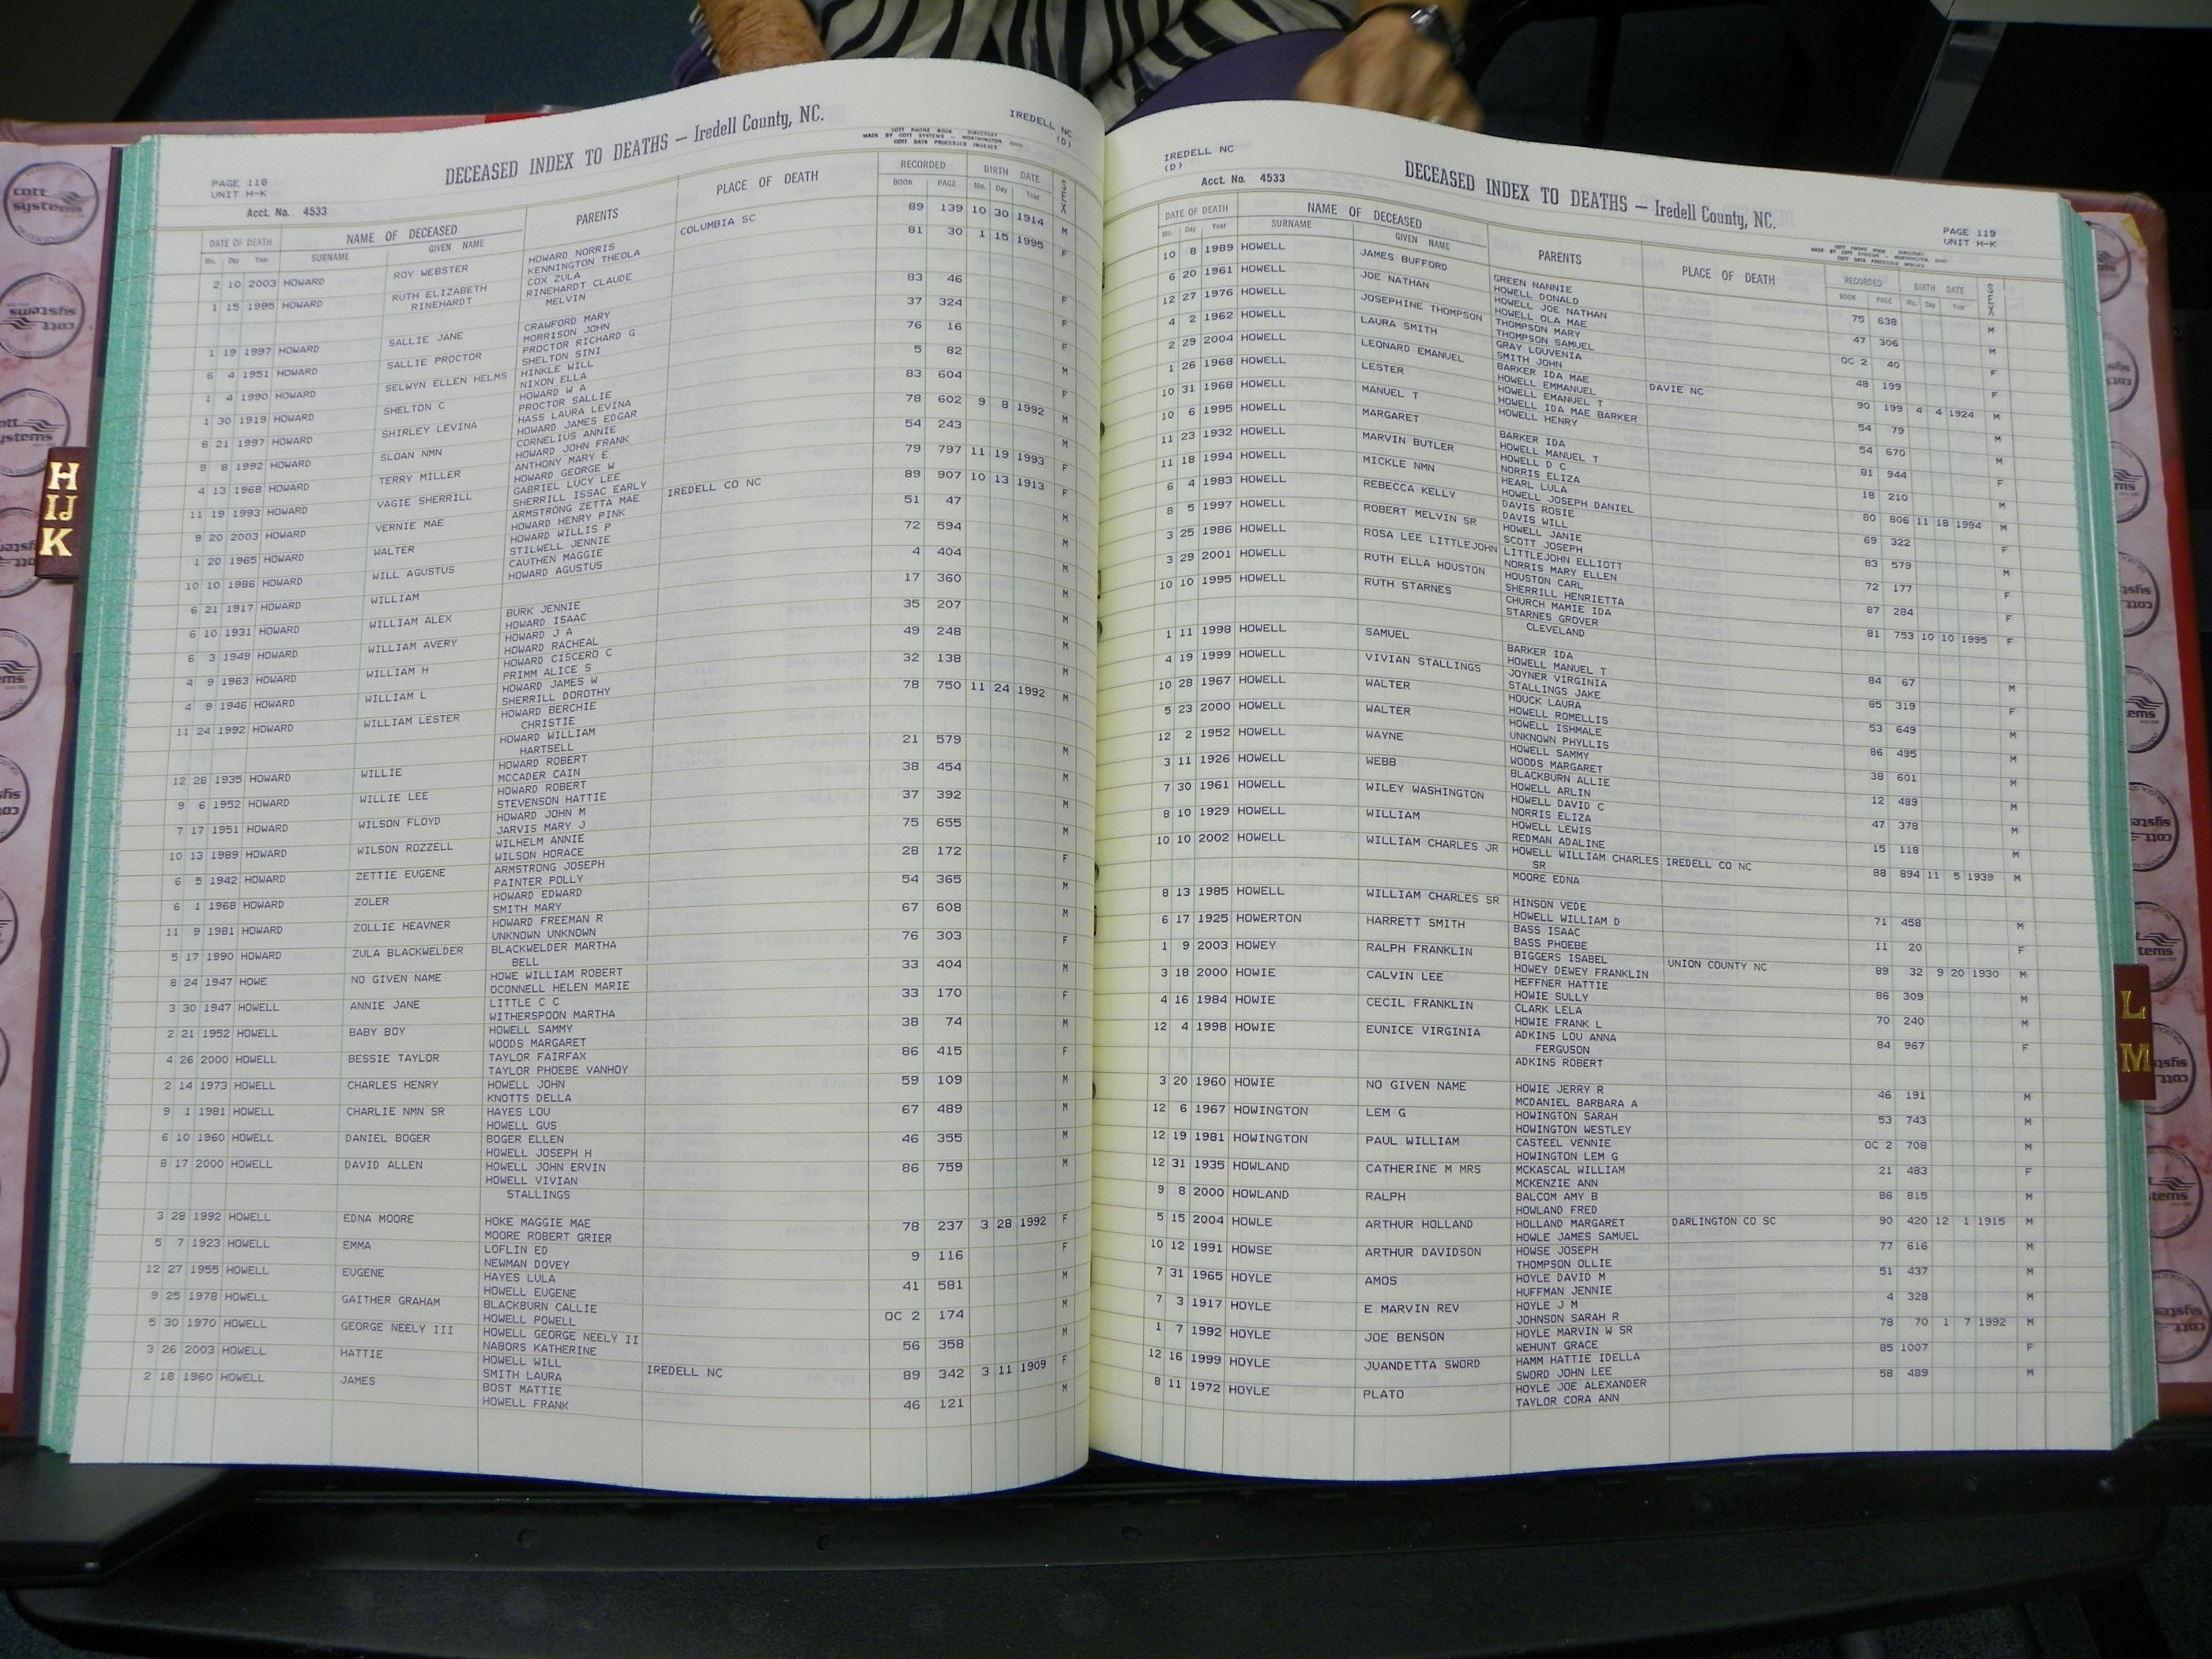 PAGE 118
UNIT H-K
DECEASED INDEX TO DEATHS — Iredell County, NC.
COTT PHONE BOOK - DIRECTORY
MADE BY COTT SYSTEMS - WORTHINGTON, OHIO
COTT DATA PROCESSED INDEXES
IREDELL NC
(D)
Acct. No. 4533
DATE OF DEATH NAME OF DECEASED PARENTS PLACE OF DEATH RECORDED BIRTH DATE SEX
Mo. Day Year SURNAME GIVEN NAME BOOK PAGE Mo. Day Year
2 10 2003 HOWARD ROY WEBSTER HOWARD NORRIS COLUMBIA SC 89 139 10 30 1914 M
KENNINGTON THEOLA
1 15 1995 HOWARD RUTH ELIZABETH COX ZULA 81 30 1 15 1995 F
RINEHARDT RINEHARDT CLAUDE
MELVIN
1 19 1997 HOWARD SALLIE JANE CRAWFORD MARY 83 46 F
MORRISON JOHN
6 4 1951 HOWARD SALLIE PROCTOR PROCTOR RICHARD G 37 324 F
SHELTON SINI
1 4 1990 HOWARD SELWYN ELLEN HELMS HINKLE WILL 76 16 F
NIXON ELLA
1 30 1919 HOWARD SHELTON C HOWARD W A 5 82 M
PROCTOR SALLIE
8 21 1997 HOWARD SHIRLEY LEVINA HASS LAURA LEVINA 83 604 F
HOWARD JAMES EDGAR
9 8 1992 HOWARD SLOAN NMN CORNELIUS ANNIE 78 602 9 8 1992 M
HOWARD JOHN FRANK
4 13 1968 HOWARD TERRY MILLER ANTHONY MARY E 54 243 M
HOWARD GEORGE W
11 19 1993 HOWARD VAGIE SHERRILL GABRIEL LUCY LEE 79 797 11 19 1993 F
SHERRILL ISSAC EARLY
9 20 2003 HOWARD VERNIE MAE ARMSTRONG ZETTA MAE IREDELL CO NC 89 907 10 13 1913 F
HOWARD HENRY PINK
1 20 1965 HOWARD WALTER HOWARD WILLIS P 51 47 M
STILWELL JENNIE
10 10 1986 HOWARD WILL AGUSTUS CAUTHEN MAGGIE 72 594 M
HOWARD AGUSTUS
6 21 1917 HOWARD WILLIAM 4 404 M
6 10 1931 HOWARD WILLIAM ALEX BURK JENNIE 17 360 M
HOWARD ISAAC
6 3 1949 HOWARD WILLIAM AVERY HOWARD J A 35 207 M
HOWARD RACHEAL
4 9 1963 HOWARD WILLIAM H HOWARD CISCERO C 49 248 M
PRIMM ALICE S
4 9 1946 HOWARD WILLIAM L HOWARD JAMES W 32 138 M
SHERRILL DOROTHY
11 24 1992 HOWARD WILLIAM LESTER HOWARD BERCHIE 78 750 11 24 1992 M
CHRISTIE
HOWARD WILLIAM
HARTSELL
12 28 1935 HOWARD WILLIE HOWARD ROBERT 21 579 M
MCCADER CAIN
9 6 1952 HOWARD WILLIE LEE HOWARD ROBERT 38 454 M
STEVENSON HATTIE
7 17 1951 HOWARD WILSON FLOYD HOWARD JOHN M 37 392 M
JARVIS MARY J
10 13 1989 HOWARD WILSON ROZZELL WILHELM ANNIE 75 655
WILSON HORACE
6 5 1942 HOWARD ZETTIE EUGENE ARMSTRONG JOSEPH 28 172 F
PAINTER POLLY
6 1 1968 HOWARD ZOLER HOWARD EDWARD 54 365 M
SMITH MARY
11 9 1981 HOWARD ZOLLIE HEAVNER HOWARD FREEMAN R 67 608 M
UNKNOWN UNKNOWN
5 17 1990 HOWARD ZULA BLACKWELDER BLACKWELDER MARTHA 76 303 F
BELL
8 24 1947 HOWE NO GIVEN NAME HOWE WILLIAM ROBERT 33 404 M
OCONNELL HELEN MARIE
3 30 1947 HOWELL ANNIE JANE LITTLE C C 33 170 F
WITHERSPOON MARTHA
2 21 1952 HOWELL BABY BOY HOWELL SAMMY 38 74 M
WOODS MARGARET
4 26 2000 HOWELL BESSIE TAYLOR TAYLOR FAIRFAX 86 415 F
TAYLOR PHOEBE VANHOY
2 14 1973 HOWELL CHARLES HENRY HOWELL JOHN 59 109 M
KNOTTS DELLA
9 1 1981 HOWELL CHARLIE NMN SR HAYES LOU 67 489 M
HOWELL GUS
6 10 1960 HOWELL DANIEL BOGER BOGER ELLEN 46 355 M
HOWELL JOSEPH H
8 17 2000 HOWELL DAVID ALLEN HOWELL JOHN ERVIN 86 759 M
HOWELL VIVIAN
STALLINGS
3 28 1992 HOWELL EDNA MOORE HOKE MAGGIE MAE 78 237 3 28 1992 F
MOORE ROBERT GRIER
5 7 1923 HOWELL EMMA LOFLIN ED 9 116 F
NEWMAN DOVEY
12 27 1955 HOWELL EUGENE HAYES LULA 41 581 M
HOWELL EUGENE
9 25 1978 HOWELL GAITHER GRAHAM BLACKBURN CALLIE OC 2 174 M
HOWELL POWELL
5 30 1970 HOWELL GEORGE NEELY III HOWELL GEORGE NEELY II 56 358 M
NABORS KATHERINE
3 26 2003 HOWELL HATTIE HOWELL WILL IREDELL NC 89 342 3 11 1909 F
SMITH LAURA
2 18 1960 HOWELL JAMES BOST MATTIE 46 121 M
HOWELL FRANK
IREDELL NC
(D)
Acct. No. 4533
DECEASED INDEX TO DEATHS — Iredell County, NC.
PAGE 119
UNIT H-K
COTT PHONE BOOK - DIRECTORY
MADE BY COTT SYSTEMS - WORTHINGTON, OHIO
COTT DATA PROCESSED INDEXES
DATE OF DEATH NAME OF DECEASED PARENTS PLACE OF DEATH RECORDED BIRTH DATE SEX
Mo. Day Year SURNAME GIVEN NAME BOOK PAGE Mo. Day Year
10 8 1989 HOWELL JAMES BUFFORD GREEN NANNIE 75 638 M
HOWELL DONALD
6 20 1961 HOWELL JOE NATHAN HOWELL JOE NATHAN 47 306 M
HOWELL OLA MAE
12 27 1976 HOWELL JOSEPHINE THOMPSON THOMPSON MARY OC 2 40 F
THOMPSON SAMUEL
4 2 1962 HOWELL LAURA SMITH GRAY LOUVENIA 48 199 F
SMITH JOHN
2 29 2004 HOWELL LEONARD EMANUEL BARKER IDA MAE DAVIE NC 90 199 4 4 1924 M
HOWELL EMMANUEL
1 26 1968 HOWELL LESTER HOWELL EMANUEL T 54 79 M
HOWELL IDA MAE BARKER
10 31 1968 HOWELL MANUEL T HOWELL HENRY 54 670 M
10 6 1995 HOWELL MARGARET BARKER IDA 81 944 F
HOWELL MANUEL T
11 23 1932 HOWELL MARVIN BUTLER HOWELL D C 18 210 M
NORRIS ELIZA
11 18 1994 HOWELL MICKLE NMN HEARL LULA 80 806 11 18 1994 M
HOWELL JOSEPH DANIEL
6 4 1983 HOWELL REBECCA KELLY DAVIS ROSIE 69 322 F
DAVIS WILL
8 5 1997 HOWELL ROBERT MELVIN SR HOWELL JANIE 83 579 M
SCOTT JOSEPH
3 25 1986 HOWELL ROSA LEE LITTLEJOHN LITTLEJOHN ELLIOTT 72 177 F
NORRIS MARY ELLEN
3 29 2001 HOWELL RUTH ELLA HOUSTON HOUSTON CARL 87 284 F
SHERRILL HENRIETTA
10 10 1995 HOWELL RUTH STARNES CHURCH MAMIE IDA 81 753 10 10 1995 F
STARNES GROVER
CLEVELAND
1 11 1998 HOWELL SAMUEL BARKER IDA 84 67 M
HOWELL MANUEL T
4 19 1999 HOWELL VIVIAN STALLINGS JOYNER VIRGINIA 85 319 F
STALLINGS JAKE
10 28 1967 HOWELL WALTER HOUCK LAURA 53 649 M
HOWELL ROMELLIS
5 23 2000 HOWELL WALTER HOWELL ISHMALE 86 495 M
UNKNOWN PHYLLIS
12 2 1952 HOWELL WAYNE HOWELL SAMMY 38 601 M
WOODS MARGARET
3 11 1926 HOWELL WEBB BLACKBURN ALLIE 12 489 M
HOWELL ARLIN
7 30 1961 HOWELL WILEY WASHINGTON HOWELL DAVID C 47 378 M
NORRIS ELIZA
8 10 1929 HOWELL WILLIAM HOWELL LEWIS 15 118 M
REDMAN ADALINE
10 10 2002 HOWELL WILLIAM CHARLES JR HOWELL WILLIAM CHARLES IREDELL CO NC 88 894 11 5 1939 M
SR
MOORE EDNA
8 13 1985 HOWELL WILLIAM CHARLES SR HINSON VEDE 71 458 M
HOWELL WILLIAM D
6 17 1925 HOWERTON HARRETT SMITH BASS ISAAC 11 20 F
BASS PHOEBE
1 9 2003 HOWEY RALPH FRANKLIN BIGGERS ISABEL UNION COUNTY NC 89 32 9 20 1930 M
HOWEY DEWEY FRANKLIN
3 18 2000 HOWIE CALVIN LEE HEFFNER HATTIE 86 309 M
HOWIE SULLY
4 16 1984 HOWIE CECIL FRANKLIN CLARK LELA 70 240 M
HOWIE FRANK L
12 4 1998 HOWIE EUNICE VIRGINIA ADKINS LOU ANNA 84 967 F
FERGUSON
ADKINS ROBERT
3 20 1960 HOWIE NO GIVEN NAME HOWIE JERRY R 46 191 M
MCDANIEL BARBARA A
12 6 1967 HOWINGTON LEM G HOWINGTON SARAH 53 743 M
HOWINGTON WESTLEY
12 19 1981 HOWINGTON PAUL WILLIAM CASTEEL VENNIE OC 2 708 M
HOWINGTON LEM G
12 31 1935 HOWLAND CATHERINE M MRS MCKASCAL WILLIAM 21 483 F
MCKENZIE ANN
9 8 2000 HOWLAND RALPH BALCOM AMY B 86 815 M
HOWLAND FRED
5 15 2004 HOWLE ARTHUR HOLLAND HOLLAND MARGARET DARLINGTON CO SC 90 420 12 1 1915 M
HOWLE JAMES SAMUEL
10 12 1991 HOWSE ARTHUR DAVIDSON HOWSE JOSEPH 77 616 M
THOMPSON OLLIE
7 31 1965 HOYLE AMOS HOYLE DAVID M 51 437 M
HUFFMAN JENNIE
7 3 1917 HOYLE E MARVIN REV HOYLE J M 4 328 M
JOHNSON SARAH R
1 7 1992 HOYLE JOE BENSON HOYLE MARVIN W SR 78 70 1 7 1992 M
WEHUNT GRACE
12 16 1999 HOYLE JUANDETTA SWORD HAMM HATTIE IDELLA 85 1007 F
SWORD JOHN LEE
8 11 1972 HOYLE PLATO HOYLE JOE ALEXANDER 58 489 M
TAYLOR CORA ANN
H
IJ
K
L
M
cott
systems